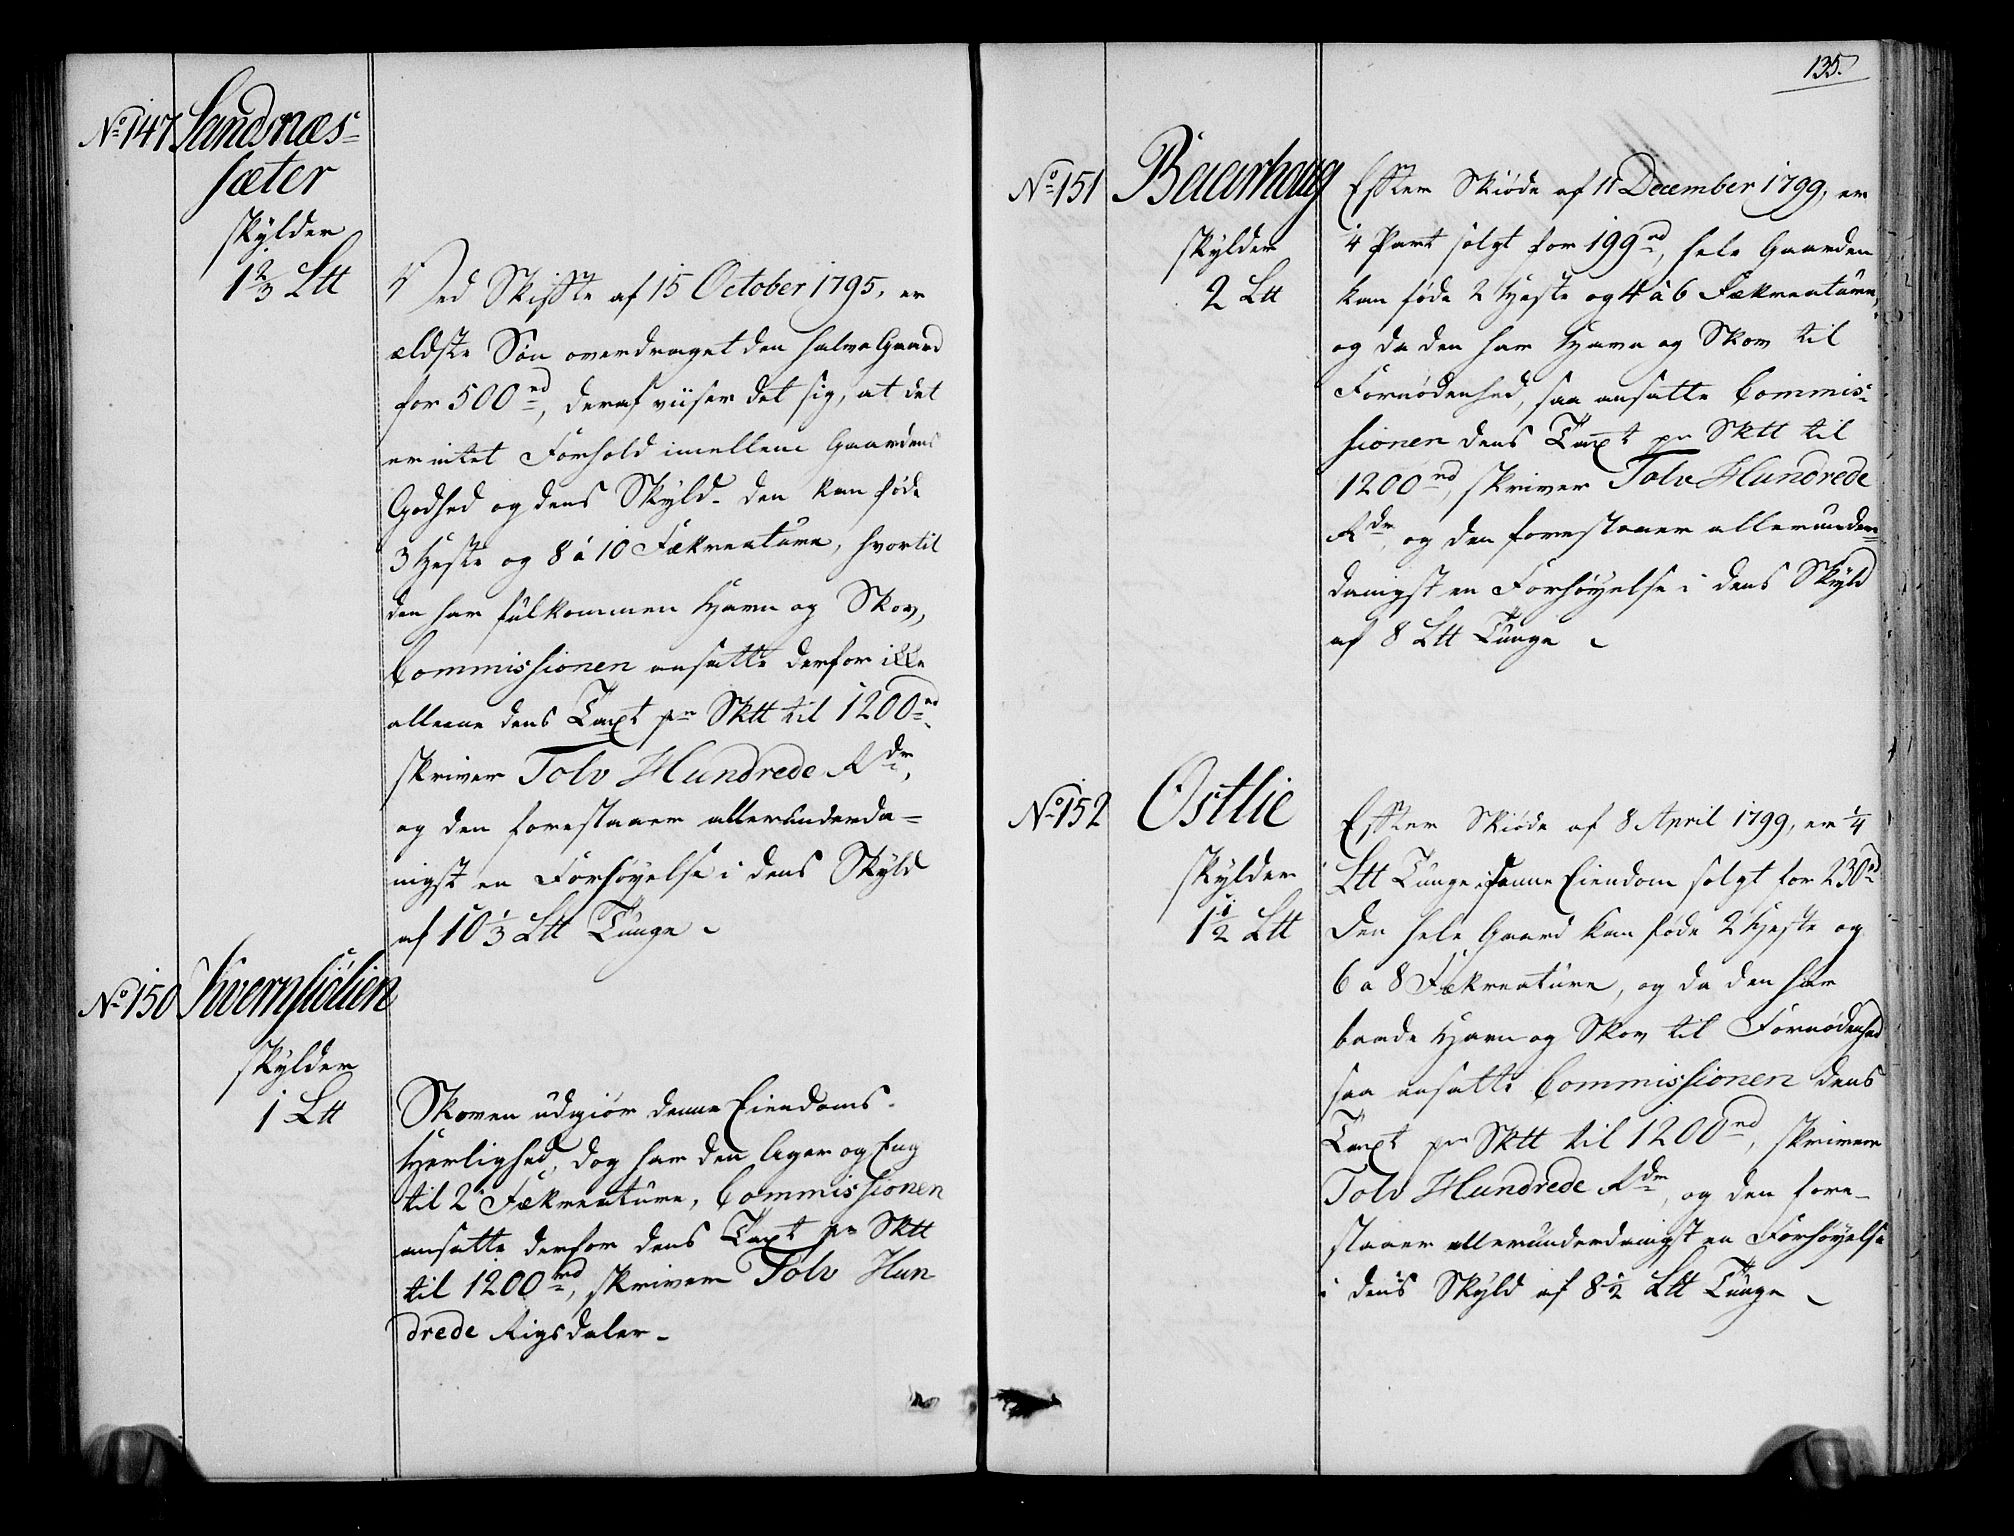 No 147 Sandnæs-
sæter
skylder
1 2/3 Ltt
Ved Skifte af 15 October 1795, er
ældste Søn overdraget den halve Gaard
for 500 rd, deraf viiser det sig, at det
er intet Forhold imellem Gaardens
Godhed og dens Skyld. den kan føde
3 Heste og 8 á 10 Fækreature, hvortil
den har fulkommen Havn og Skov,
Commissionen ansatte derfor ikke
alleene dens Taxt pr Sktt til 1200 rd
skriver Tolv Hundrede Rdr,
og den forestaaer allerunderda=
nigst en Forhøyelse i dens Skyld
af 10 1/3 Ltt Tunge
No 150 Kvernsiølien
skylder
1 Ltt
Skoven udgiør denne Eiendoms
Herlighed, dog har den Ager og Eng
til 2 Fækreature, Commissionen
ansatte derfor dens Taxt pr Sktt
til 1200 rd, skriver Tolv Hun
drede Rigsdaler
135.
No 151 Beierhoug
skylder
2 Ltt
Efter Skiøde af 11 December 1799, er
1/4 Part solgt for 199 rd, hele Gaarden
kan føde 2 Heste og 4 á 6 Fækreature,
og da den har Havn og Skov til
Fornødenhed, saa ansatte Commis-
sionen dens Taxt pr Sktt til
1200 rd, skriver Tolv Hundrede
Rdr, og den forestaaer allerunder=
danigst en Forhøyelse i dens Skyld
af 8 Ltt Tunge
No 152 Ostlie
skylder
1 1/2 Ltt
Efter Skiøde af 8 April 1799, er 1/4
Ltt Tunge i denne Eiendom solgt for 230 rd
den hele Gaard kan føde 2 Heste og
6 a 8 Fækreature, og da den har
baade Havn og Skov til Fornødenhed
saa ansatte Commissionen dens
Taxt pr Sktt til 1200 rd, skriver
Tolv Hundrede Rdr, og den fore-
staaer allerunderdanigst en Forhøyelse
i dens Skyld af 8 1/2 Ltt Tunge